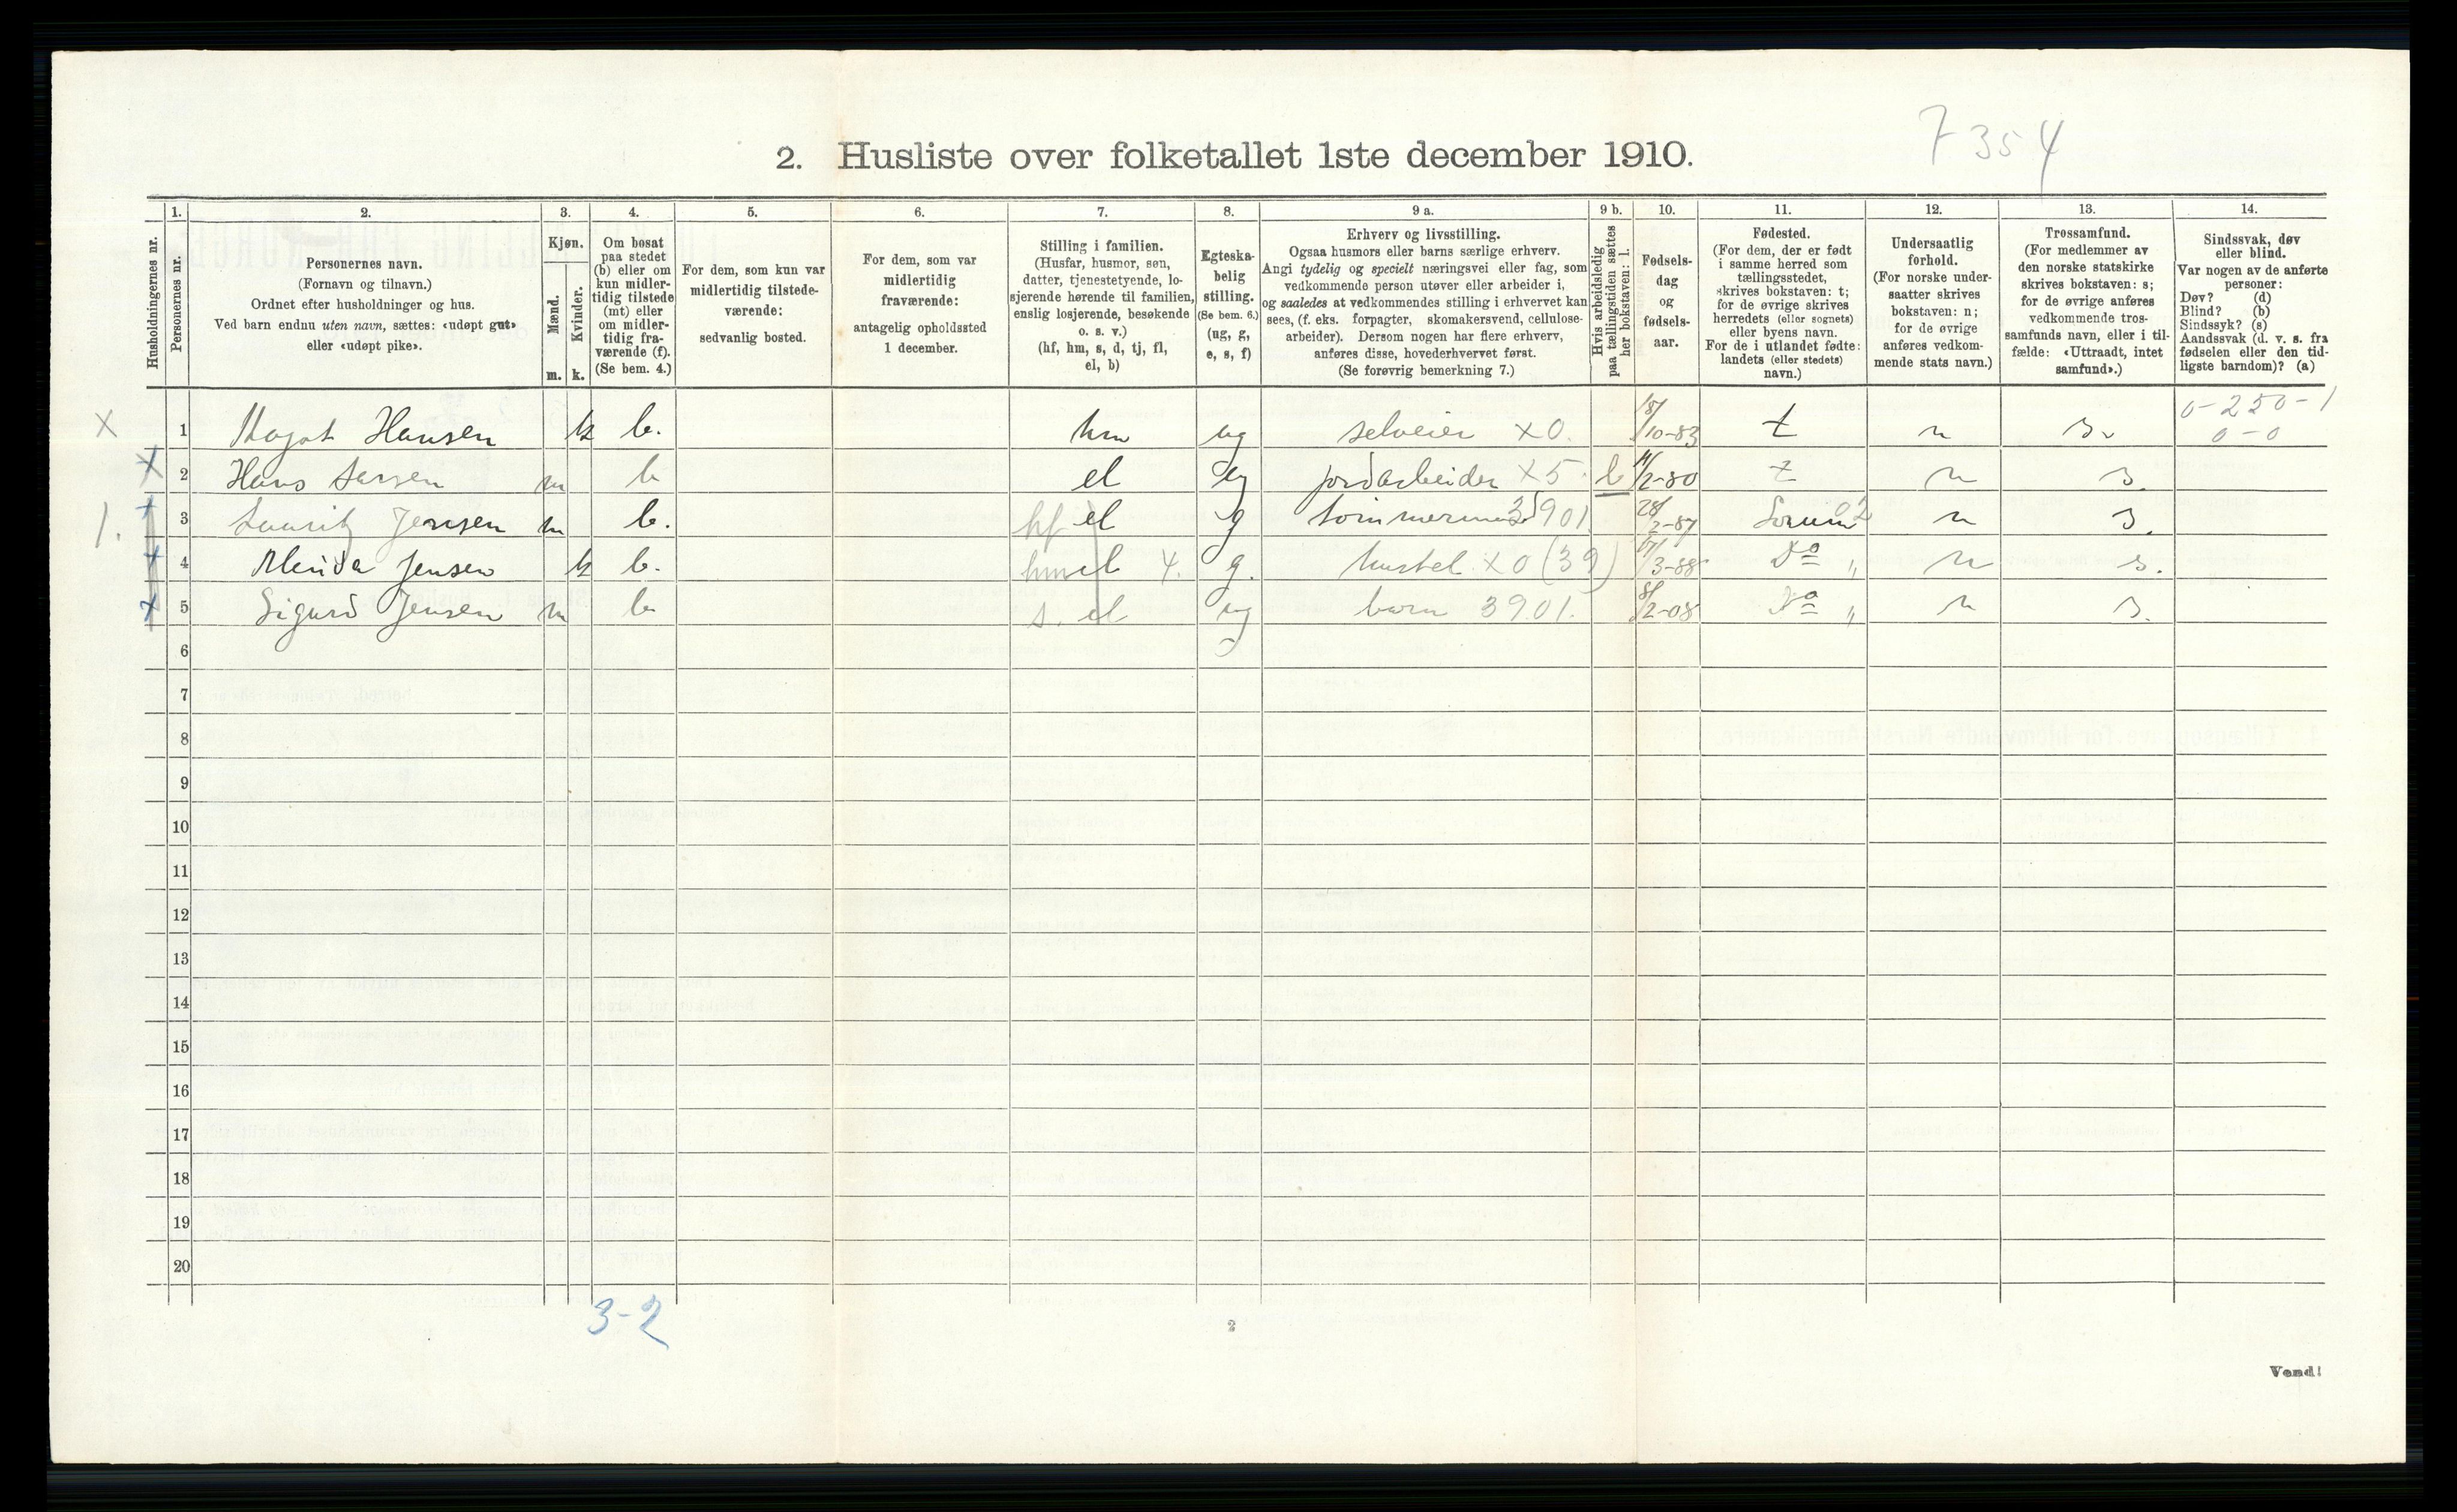 7354
2. Husliste over folketallet 1ste december 1910.
Husholdningernes nr.
1. Personernes nr.
2. Personernes navn.
(Fornavn og tilnavn.)
Ordnet efter husholdninger og hus.
Ved barn endnu uten navn, sættes: «udøpt gut»
eller «udøpt pike».
3. Kjøn.
Mænd. m.
Kvinder. k.
4. Om bosat
paa stedet
(b) eller om
kun midler-
tidig tilstede
(mt) eller
om midler-
tidig fra-
værende (f).
(Se bem. 4.)
5. For dem, som kun var
midlertidig tilstede-
værende:
sedvanlig bosted.
6. For dem, som var
midlertidig
fraværende:
antagelig opholdssted
1 december.
7. Stilling i familien.
(Husfar, husmor, søn,
datter, tjenestetyende, lo-
sjerende hørende til familien,
enslig losjerende, besøkende
o. s. v.)
(hf, hm, s, d, tj, fl,
el, b)
8. Egteska-
belig
stilling.
(Se bem. 6.)
(ug, g,
e, s, f)
9 a. Erhverv og livsstilling.
Ogsaa husmors eller barns særlige erhverv.
Angi tydelig og specielt næringsvei eller fag, som
vedkommende person utøver eller arbeider i,
og saaledes at vedkommendes stilling i erhvervet kan
sees, (f. eks. forpagter, skomakersvend, cellulose-
arbeider). Dersom nogen har flere erhverv,
anføres disse, hovederhvervet først.
(Se forøvrig bemerkning 7.)
9 b. Hvis arbeidsledig
paa tællingstiden sættes
her bokstaven: l.
10. Fødsels-
dag
og
fødsels-
aar.
11. Fødested.
(For dem, der er født
i samme herred som
tællingsstedet,
skrives bokstaven: t;
for de øvrige skrives
herredets (eller sognets)
eller byens navn.
For de i utlandet fødte:
landets (eller stedets)
navn.)
12. Undersaatlig
forhold.
(For norske under-
saatter skrives
bokstaven: n;
for de øvrige
anføres vedkom-
mende stats navn.)
13. Trossamfund.
(For medlemmer av
den norske statskirke
skrives bokstaven: s;
for de øvrige anføres
vedkommende tros-
samfunds navn, eller i til-
fælde: «Uttraadt, intet
samfund».)
14. Sindssvak, døv
eller blind.
Var nogen av de anførte
personer:
Døv? (d)
Blind? (b)
Sindssyk? (s)
Aandssvak (d. v. s. fra
fødselen eller den tid-
ligste barndom)? (a)
x 1 Hansen k b. hm ug selveier x0. 18/10-83 t n s. 0-250-1
0-0
x 2 Hans m b el ug jordarbeider x5. l 11/2-80 t n s.
1. x 3 Lauritz Jensen m b. hf el g 3901 28/2-87 Sørum 02 n s.
x 4 Jensen k b. hm el 4. g. hustel x0 (39) 17/3-88 Do " n s.
x 5 Sigurd Jensen m b s. el ug barn 3901. 8/2-08 Do " n s.
6
7
8
9
10
11
12
13
14
15
16
17
18
19
20
3-2
2
Vend!